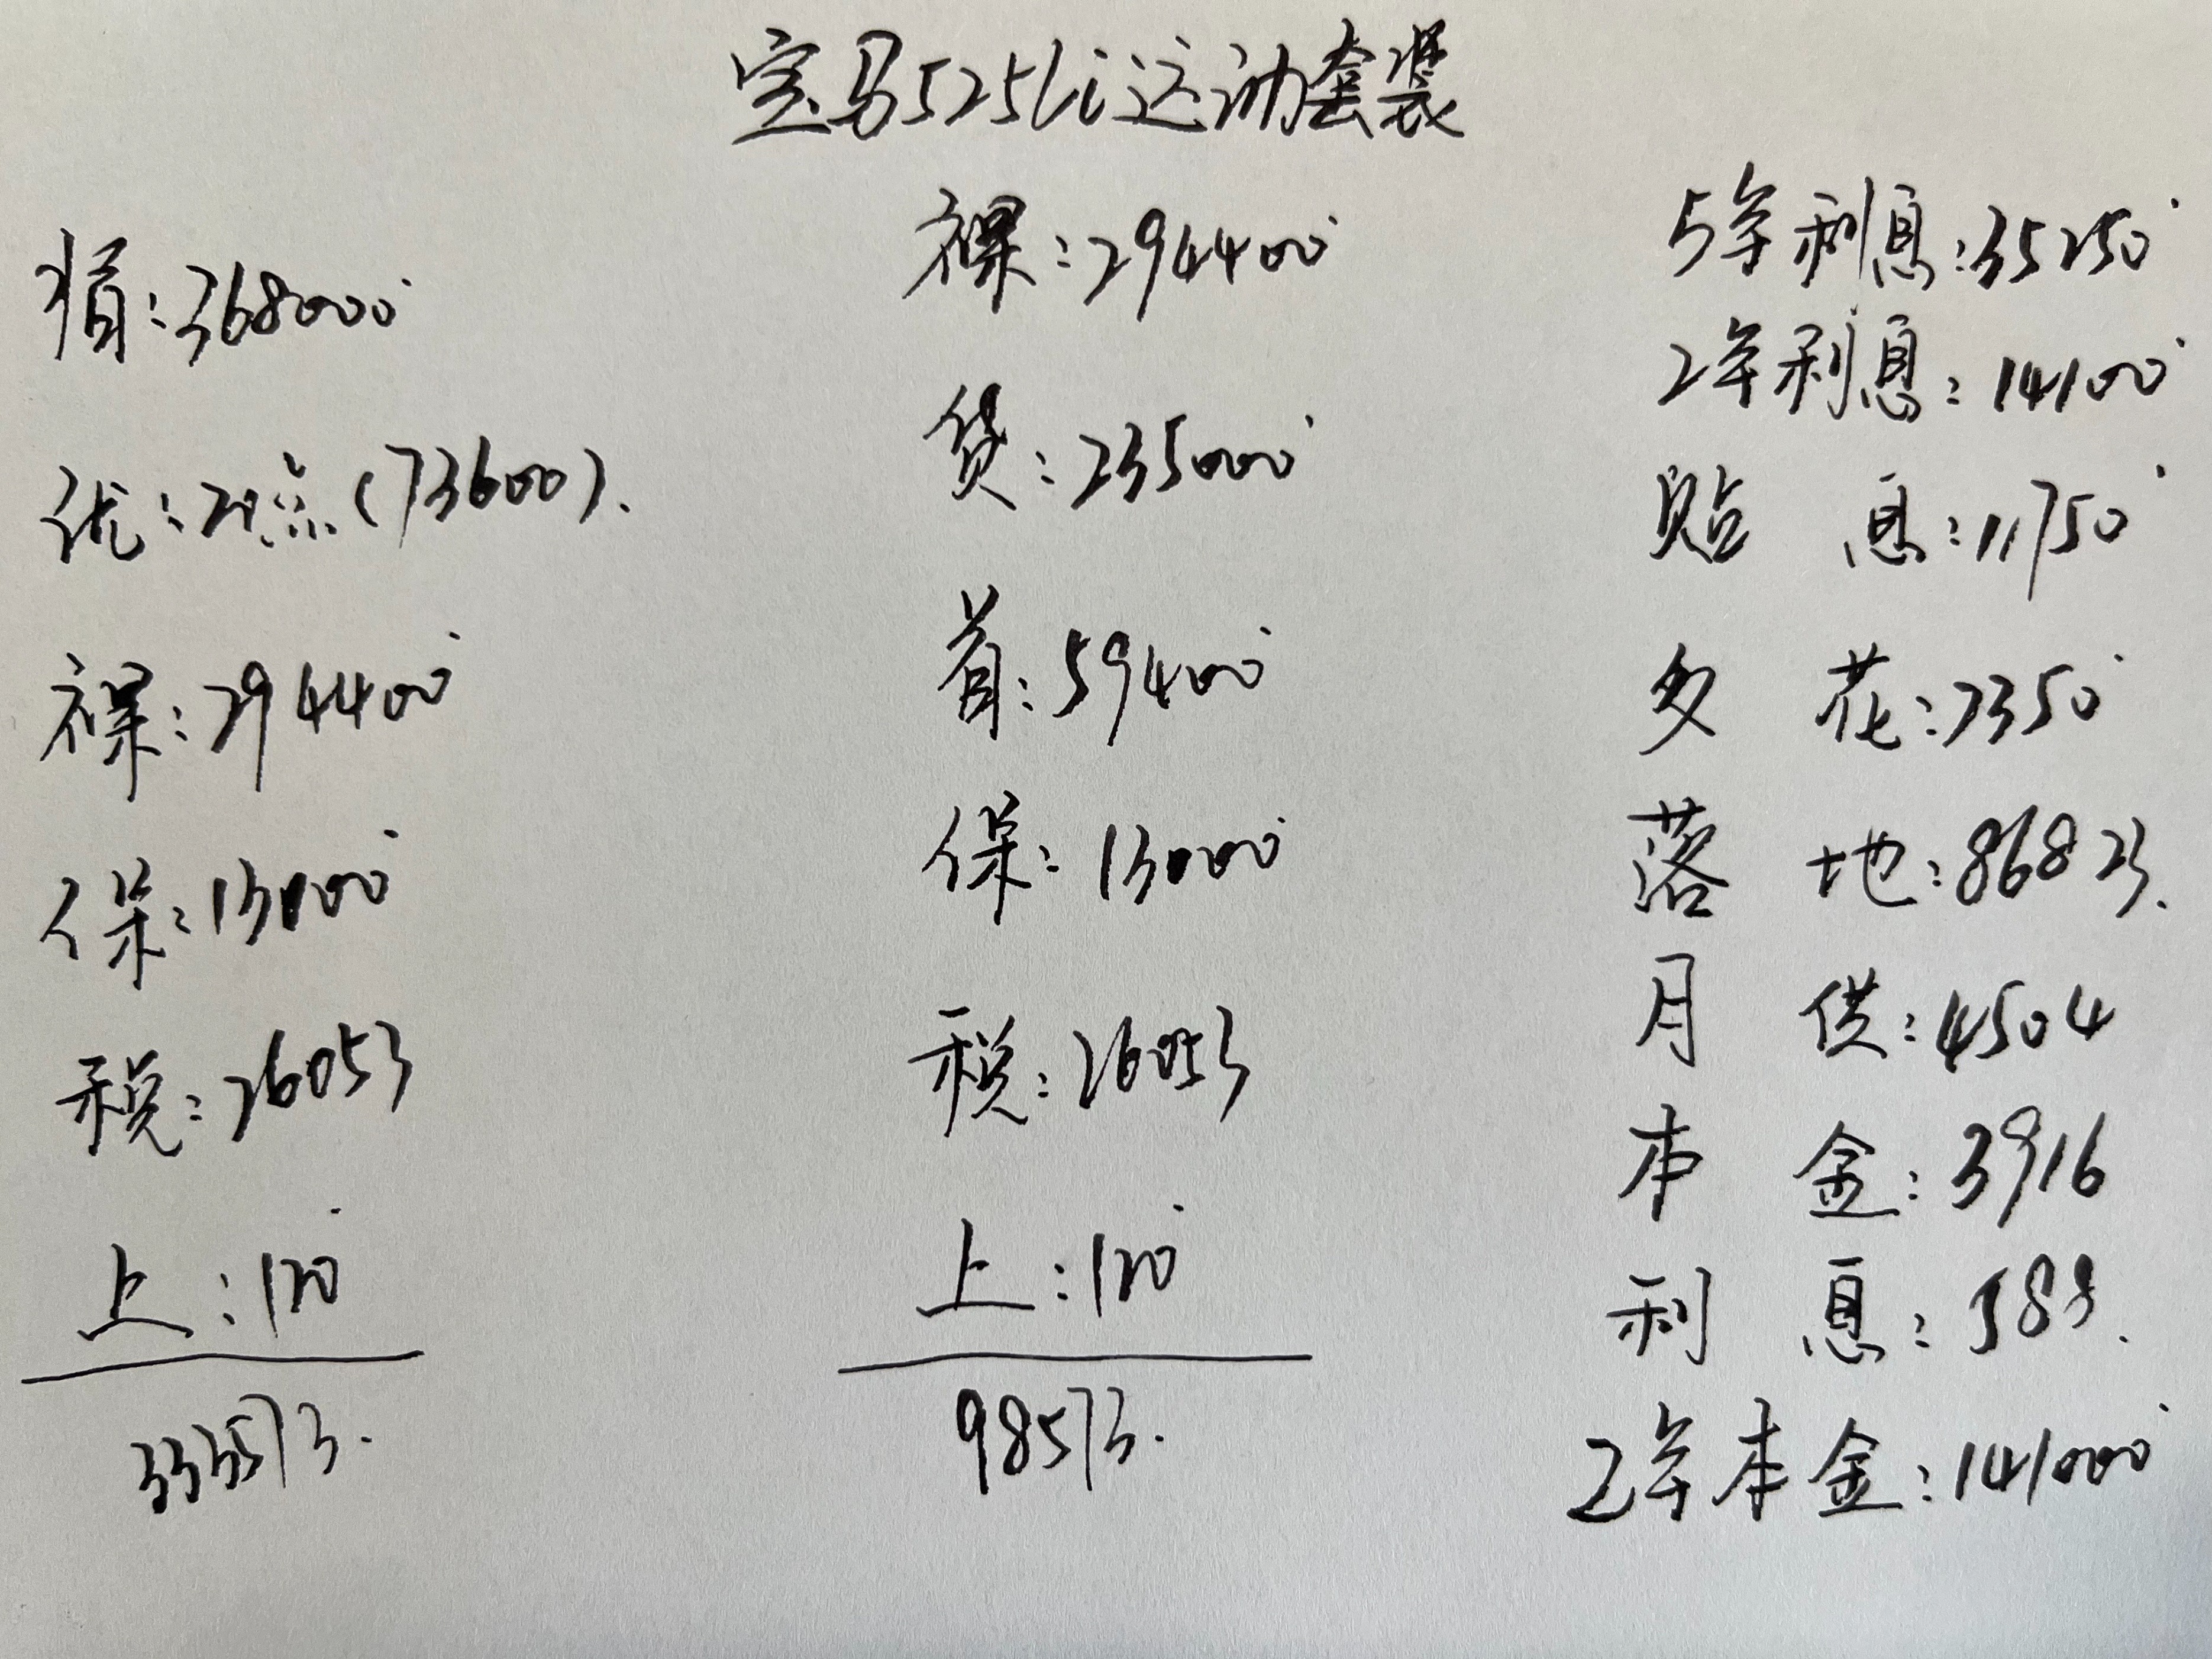 宝马525Li运动套装
指:368000
优:20点(73600).
裸:294400
保:13000
税:26053
上:120
333573.
裸:294400
贷:235000
首:59400
保:13000
税:26053
上:120
98573.
5年利息:35250
2年利息:14100
贴息:11750
多花:2350
落地:86823.
月供:4504
本金:3916
利息:588.
2年本金:141000